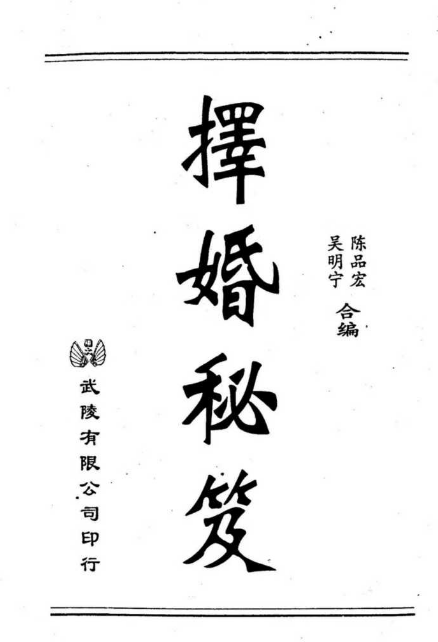 擇婚秘笈
陈品宏
吴明宁
合编
武陵有限公司印行